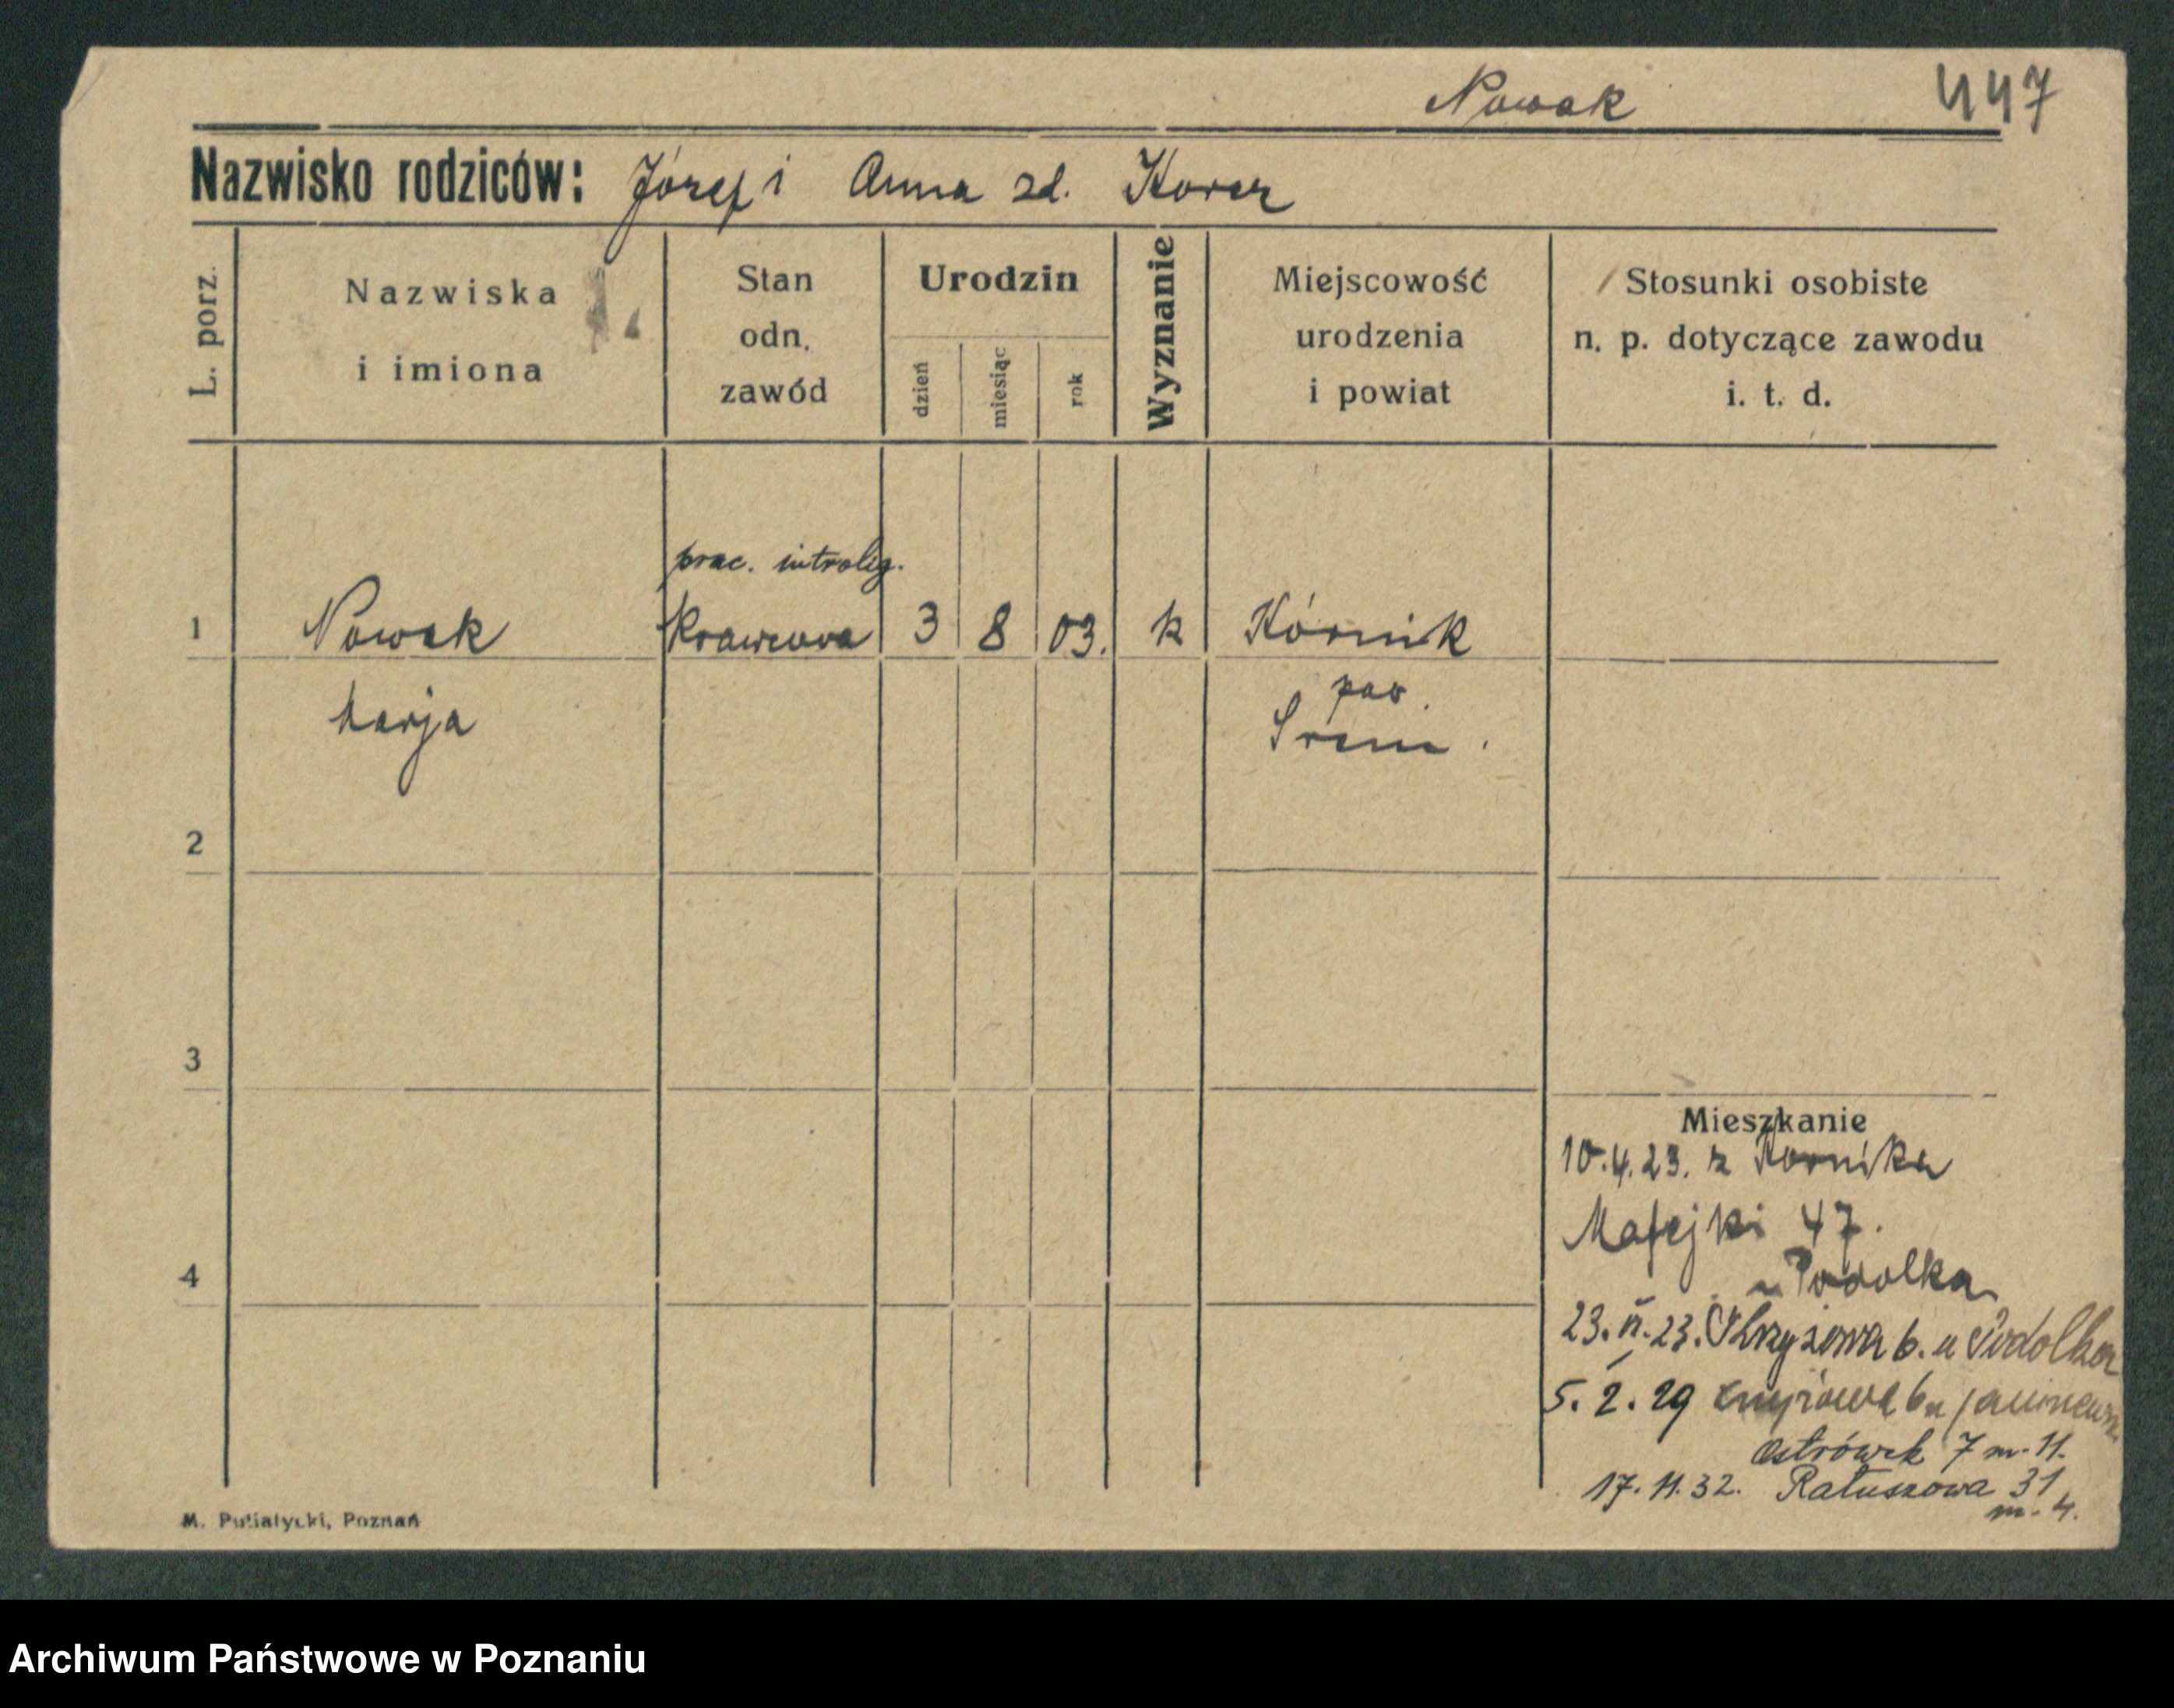 Nowak 447
Nazwisko rodziców: Józef i Anna zd. Korcz
L. porz.
Nazwiska
i imiona
Stan
odn.
zawód
Urodzin
dzień
miesiąc
rok
Wyznanie
Miejscowość
urodzenia
i powiat
Stosunki osobiste
n. p. dotyczące zawodu
i. t. d.
prac. introlig.
1 Nowak Krawcowa 3 8 03. k Kórnik
Marja
pow.
Śrem.
2
3
4
Mieszkanie
10.4.23. z Kornika
Matejki 47.
u Podolka
23. 23. 6. u Podolka
5. 2. 29 6 u
Ostrówek 7 m. 11.
17. 11. 32. Ratuszowa 31
m. 4.
M. Putiatycki, Poznań
Archiwum Państwowe w Poznaniu